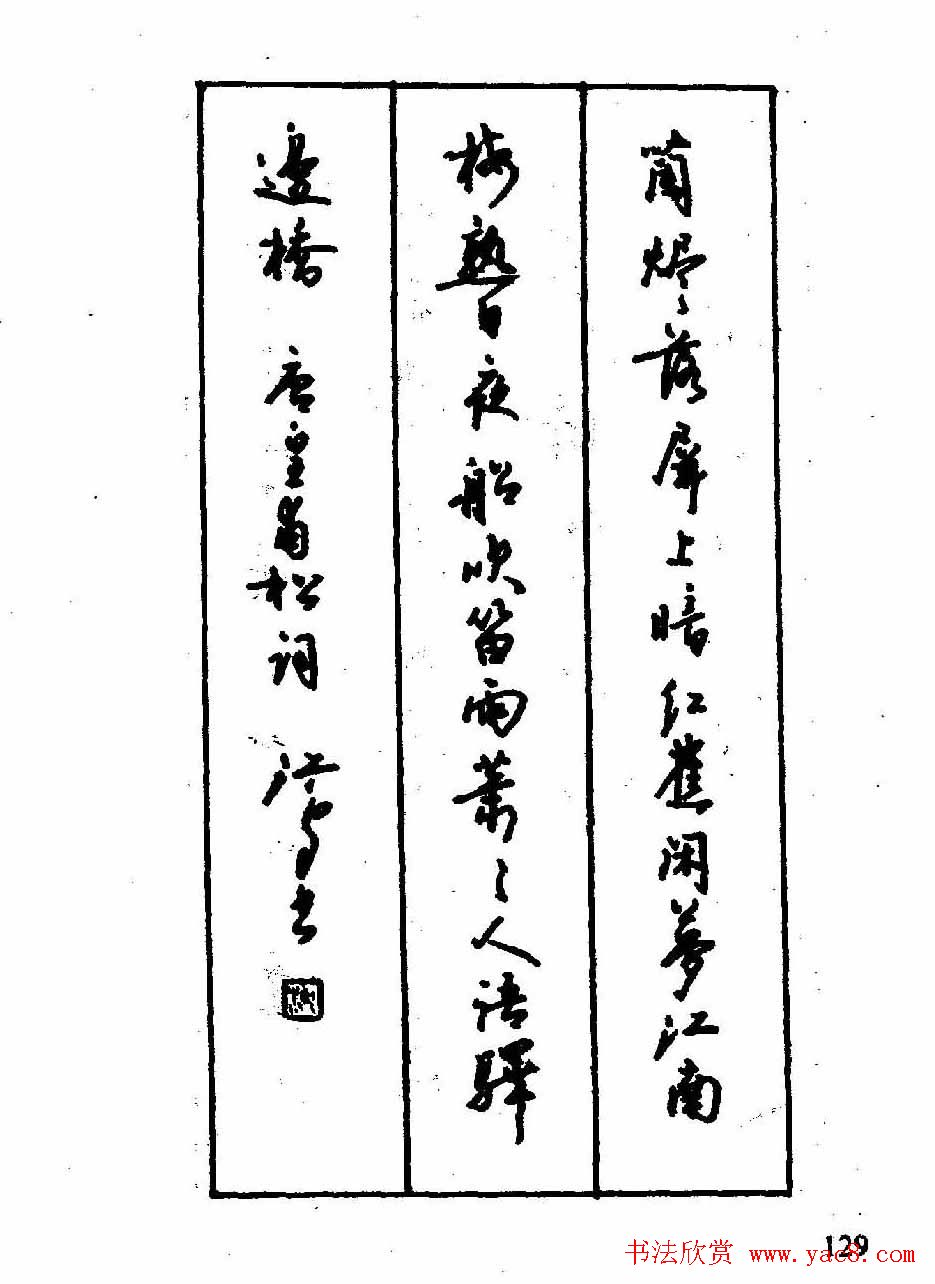 蘭烬落屏上暗红蕉闲夢江南
梅熟日夜船吹笛雨蕭々人语驛
邊橋 唐皇甫松词 江鸟书
129
书法欣赏 www.yac8.com